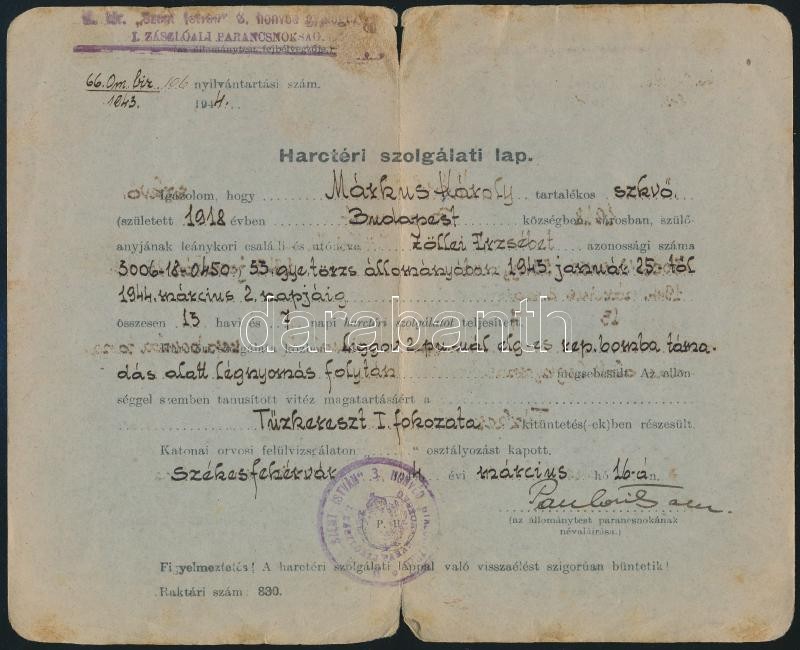 M. kir. „Szent István" 3. honvéd
I. ZÁSZLÓALJ PARANCSNOKSÁG.
(az állománytest fejbélyegzője.)
66. Om. biz. 106 nyilvántartási szám.
1943. 1944.
Harctéri szolgálati lap.
Igazolom, hogy Márkus Károly tartalékos szkvő.
(született 1918 évben Budapest községben, városban, szülő
anyjának leánykori családi és utóneve Zöllei Erzsébet azonossági száma
3006-18-0450, 53. gye. törzs állományában 1943. január 25.-től
1944. március 2. napjáig
összesen 13 havi és 7 napi harctéri szolgálatot teljesített,
szolgálata közben Liggov 2. pu.-nál elg-es rep. bomba táma-
dás alatt légnyomás folytán megsebesült. Az ellen-
séggel szemben tanusított vitéz magatartásáért a
Tűzkereszt I. fokozata kitüntetés(-ek)ben részesült.
Katonai orvosi felülvizsgálaton „ " osztályozást kapott.
Székesfehérvár 4. évi március hó 16-án.
(az állománytest parancsnokának
névaláírása.)
SZENT ISTVÁN" 3. HONVÉD
P. H.
Figyelmeztetés! A harctéri szolgálati lappal való visszaélést szigorúan büntetik!
Raktári szám: 830.
darabanth